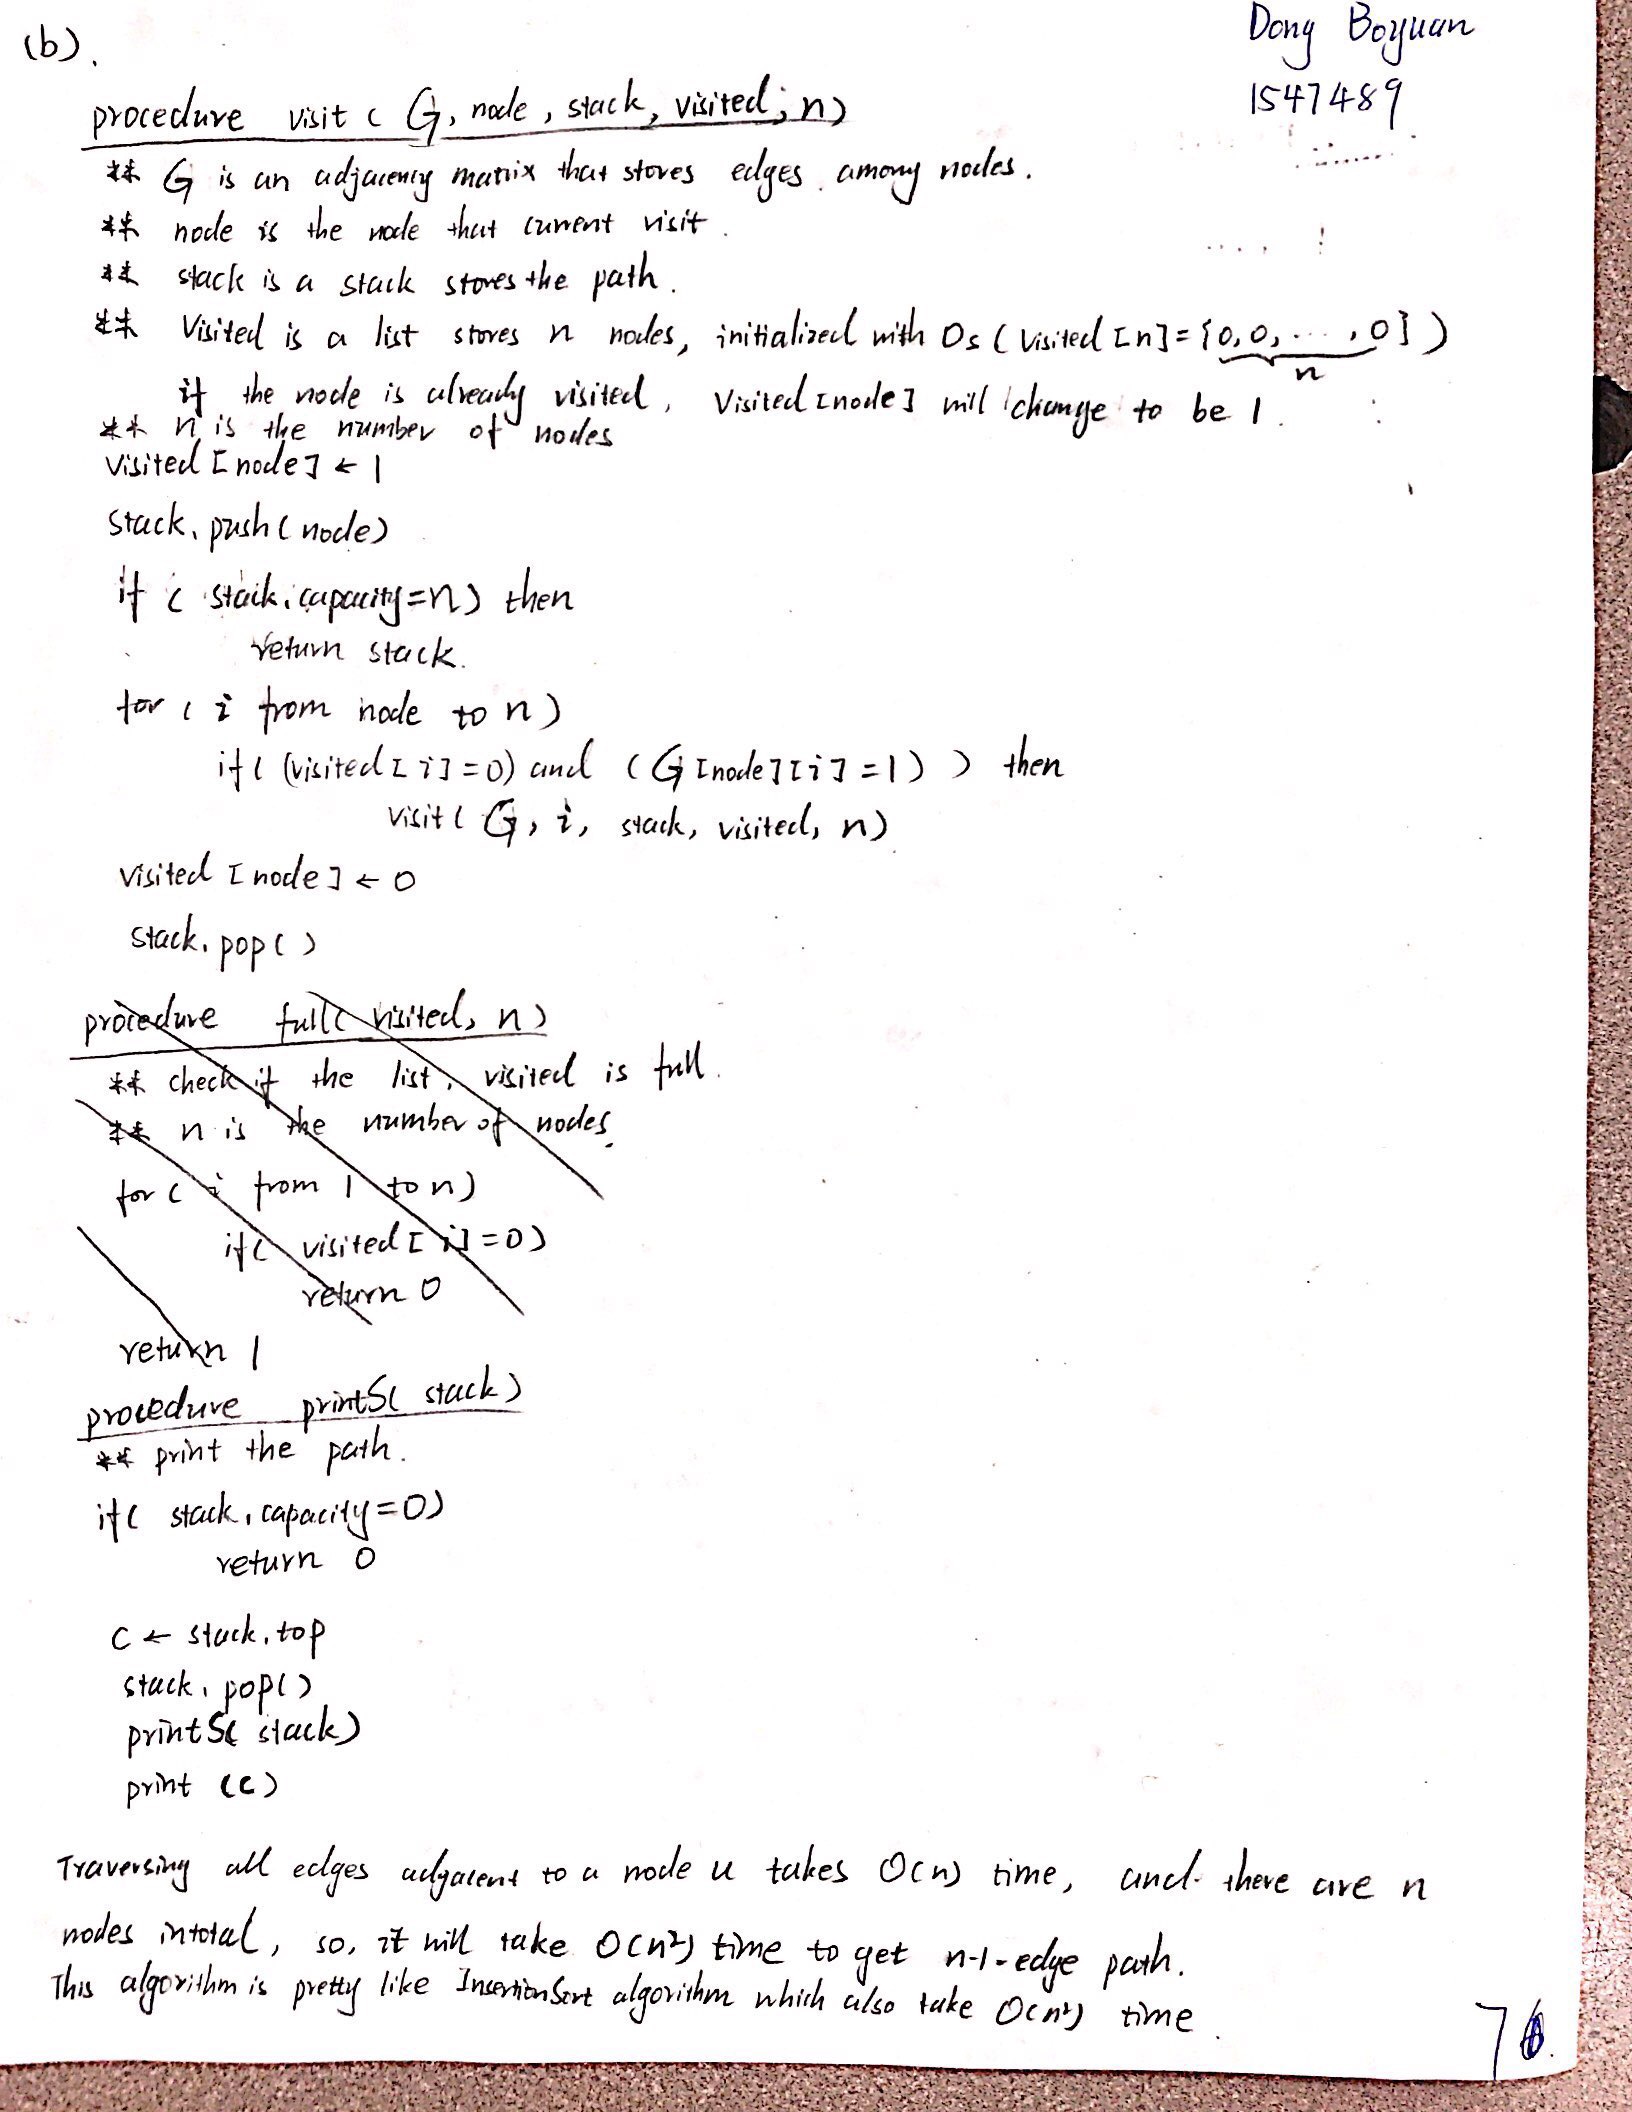 (b).
Dong Boyuan
1547489
procedure visit ( G, node, stack, visited, n)
** G is an adjacency matrix that stores edges among nodes.
** node is the node that current visit.
** stack is a stack stores the path.
** Visited is a list stores n nodes, initialized with 0s ( Visited [n] = {0,0, ... ,0} )
n
if the node is already visited, Visited [node] will change to be 1.
** n is the number of nodes
visited [node] ← 1
stack.push(node)
if ( stack.capacity=n) then
return stack.
for ( i from node to n)
if( (visited[i]=0) and (G[node][i]=1) ) then
visit( G, i, stack, visited, n)
visited [node] ← 0
stack.pop()
procedure full( visited, n)
** check if the list, visited is full.
** n is the number of nodes.
for ( i from 1 to n)
if( visited[i]=0)
return 0
return 1
procedure printS( stack)
** print the path.
if( stack.capacity=0)
return 0
c ← stack.top
stack.pop()
printS( stack)
print (c)
Traversing all edges adjacent to a node u takes O(n) time, and there are n
nodes intotal, so, it will take O(n²) time to get n-1-edge path.
This algorithm is pretty like InsertionSort algorithm which also take O(n²) time.